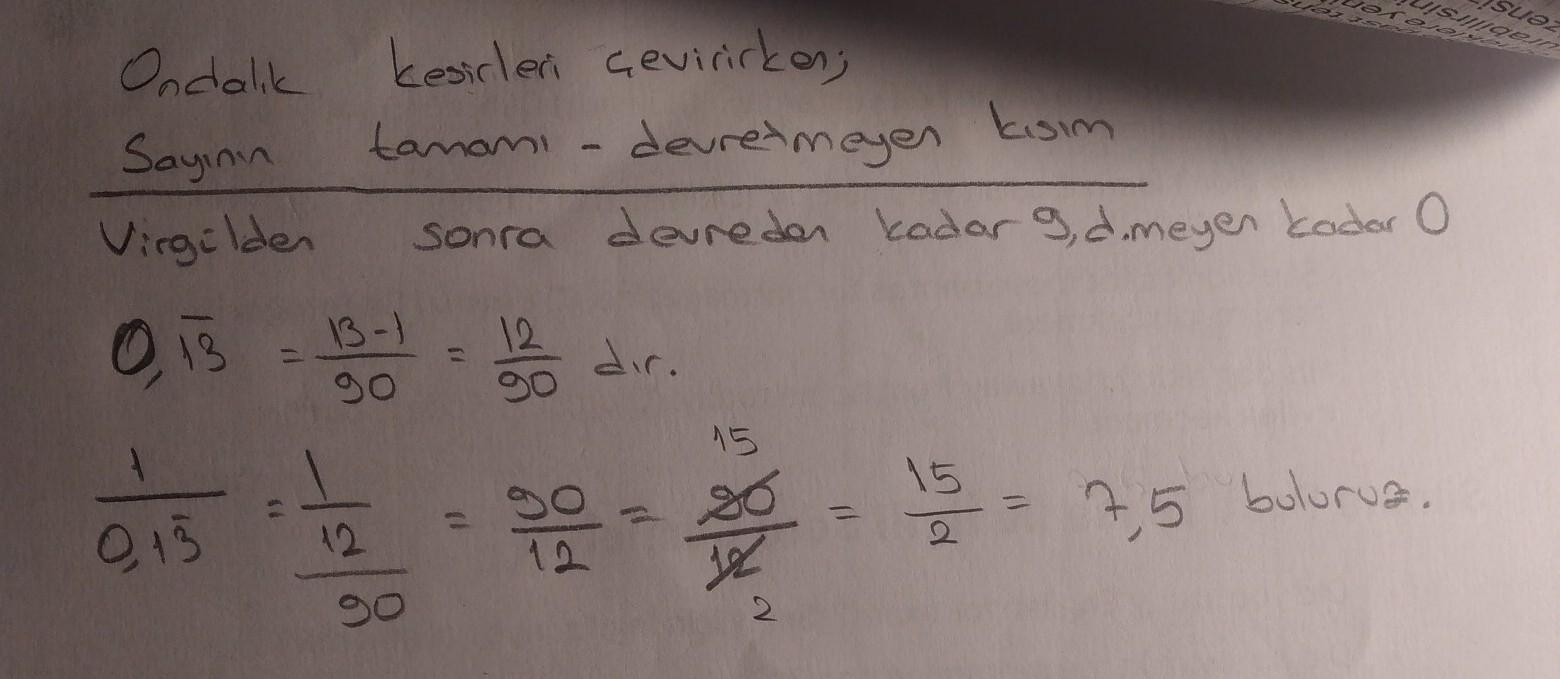 Ondalık kesirleri çevirirken;
Sayının tamamı - devretmeyen kısım
Virgülden sonra devreden kadar 9, d.meyen kadar 0
0,13̅ = 13-1/90 = 12/90 dır.
1/0,13̅ = 1/12/90 = 90/12 = 90/12 15 2 = 15/2 = 7,5 buluruz.